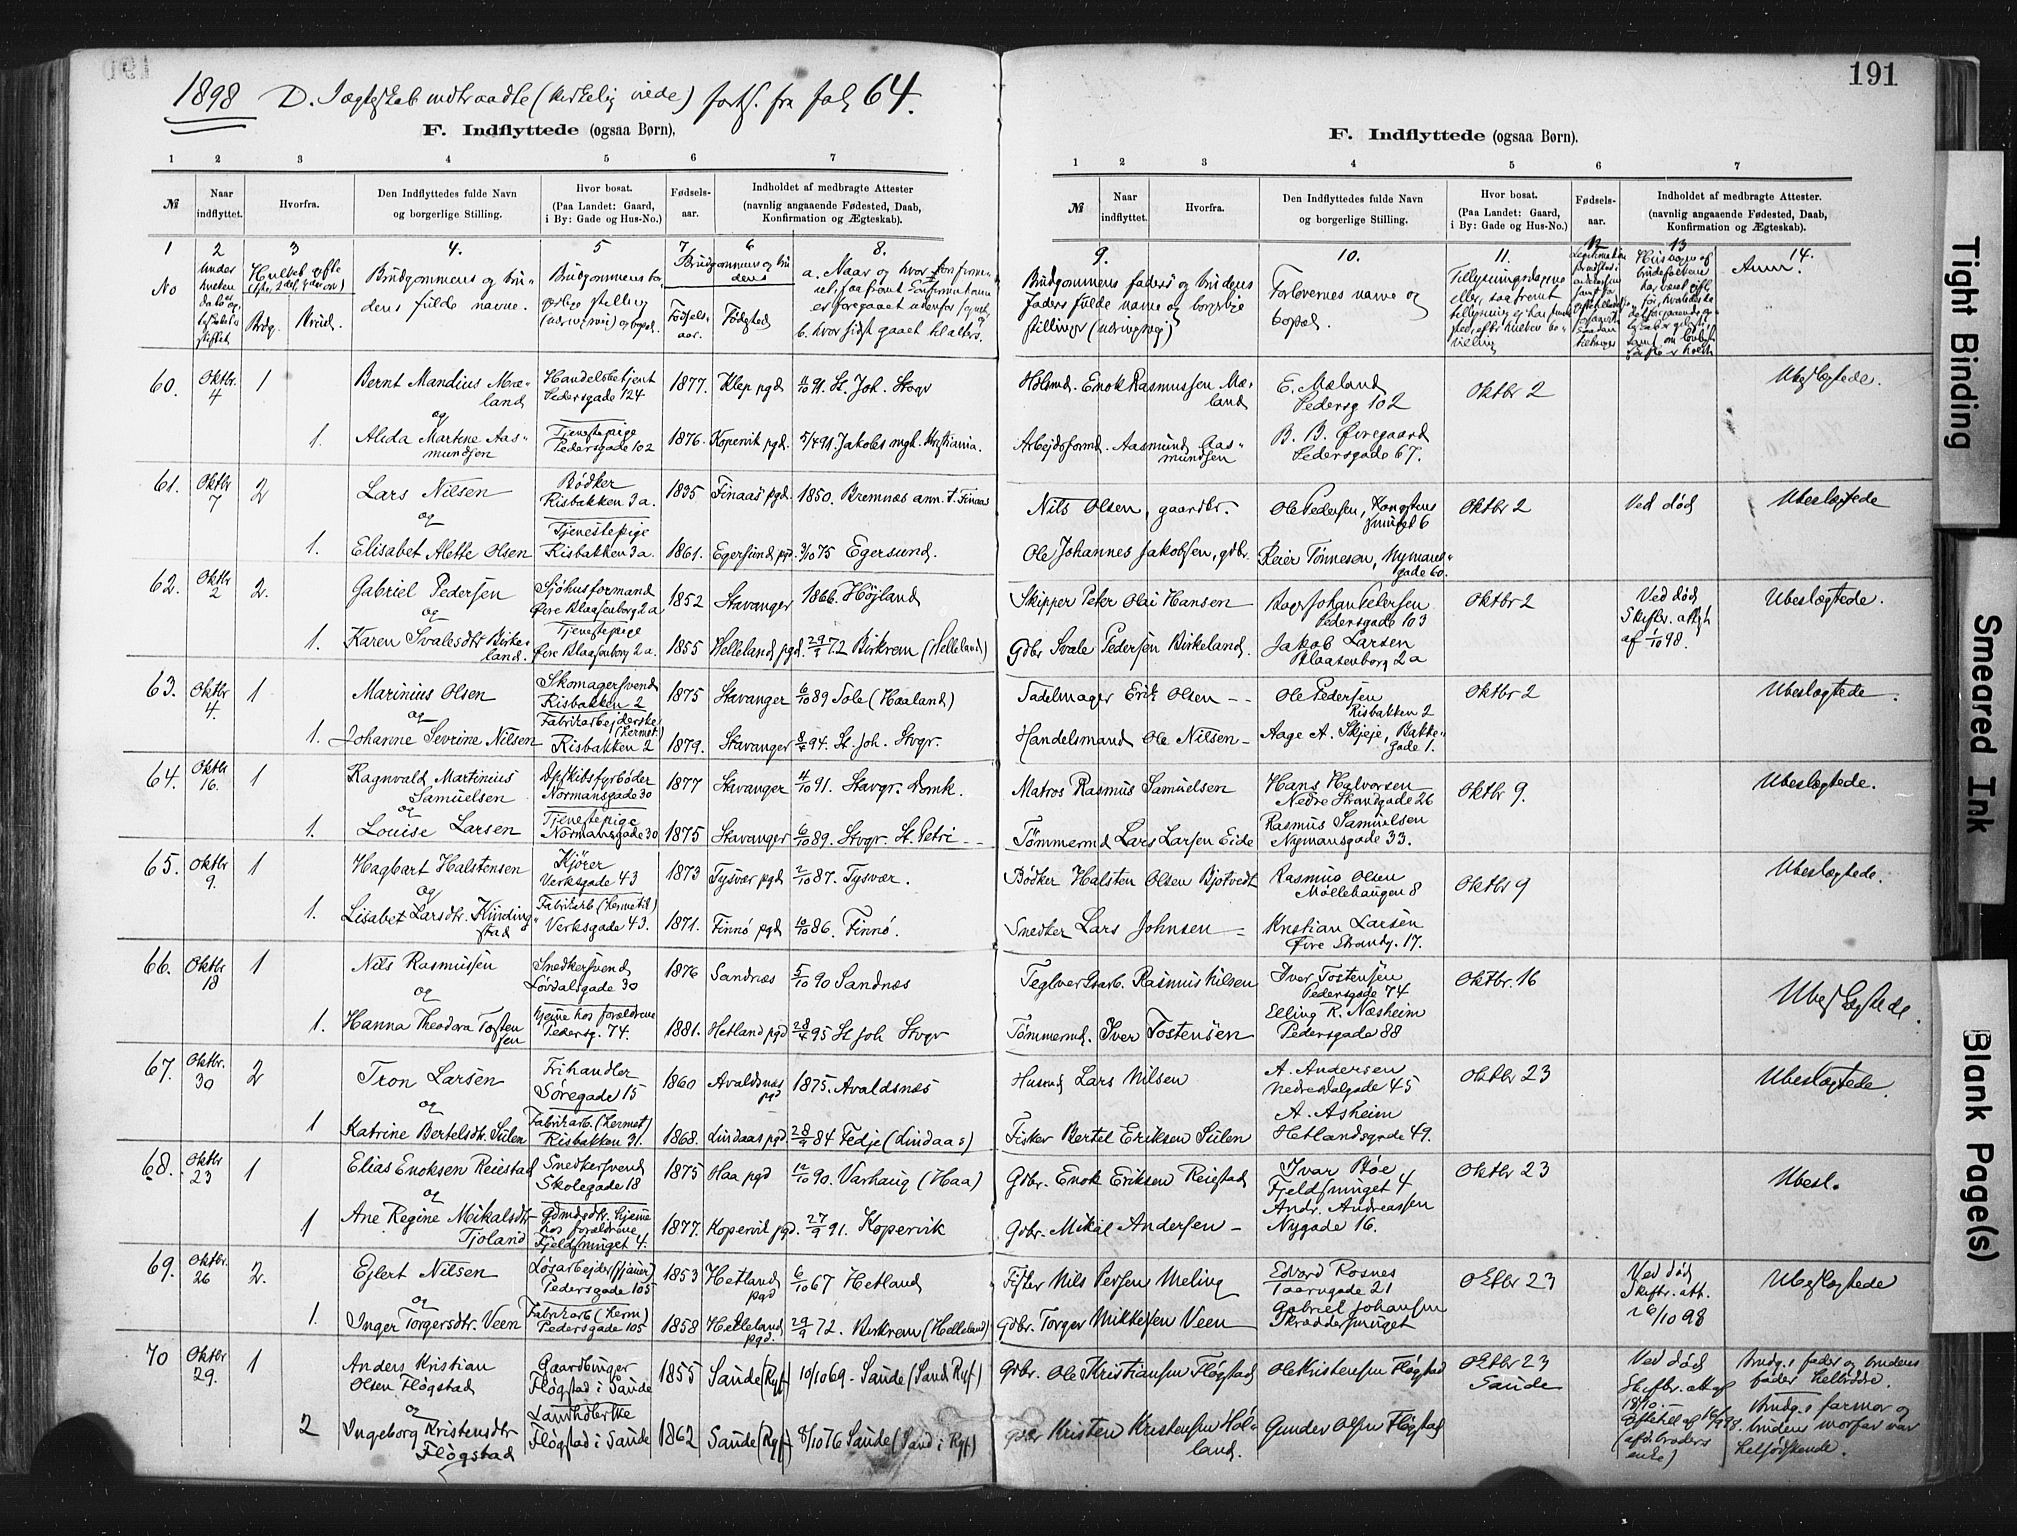 191
1898 D. Ægteskab indtraadte (kirkelig viede) forts. fra fol 64.
F. Indflyttede (ogsaa Børn),
1 2 3 4 5 6 7
№ Naar indflyttet. Hvorfra. Den Indflyttedes fulde Navn og borgerlige Stilling. Hvor bosat. (Paa Landet: Gaard, i By: Gade og Hus-No.) Fødsels-aar. Indholdet af medbragte Attester (navnlig angaaende Fødested, Daab, Konfirmation og Ægteskab).
1 2 3 4. 5 7 6 8.
No Brudg. Brud. Brudgommens og brudens fulde navne. Brudgommens borgerlige stilling (næringsvei) og bopæl. Brudgommens og brudens Fødselsaar. Fødested a. Naar og hvor konfirmeret, saafremt Konfirmationen er foregaaet udenfor sognet og b. hvor sidst gaaet til alters.
F. Indflyttede (ogsaa Børn).
1 2 3 4 5 6 7
№ Naar indflyttet. Hvorfra. Den Indflyttedes fulde Navn og borgerlige Stilling. Hvor bosat. (Paa Landet: Gaard, i By: Gade og Hus-No.) Fødsels-aar. Indholdet af medbragte Attester. (navnlig angaaende Fødested, Daab, Konfirmation og Ægteskab).
9. 10. 11. 12 13 14.
Brudgommens faders og brudens faders fulde navne og borgerlige stilling (næringsvei) Forlovernes navne og bopæl. Anm.
60. Oktbr. 4 1 Bernt Mandius Mæland Handelsbetjent Pedersgade 124 1877. Klep pgd 4/10 91. St. Joh. Stvgr Enok Rasmussen Mæland E. Mæland Pedersg 102 Oktbr 2 Ubeslægtede.
og
1. Alida Martine Aasmundsen Tjenestepige Pedersgade 102 1876. Kopervik pgd. 5/4 91. Jakobs mgh. Kristiania. Arbeidsformd. Aasmund Aasmundsen B. B. Øvregaard Pedersgade 67.
61. Oktbr 7 2 Lars Nilsen Bødker Risbakken 3a. 1835 Finaas pgd. 1850. Bremnæs ann. t. Finaas Nils Olsen, gaardbr. Ole Pedersen, Kongstenssmuget 6 Oktbr 2 Ved død Ubeslægtede
og
1. Elisabet Alette Olsen Tjenestepige Risbakken 3a. 1861. Egersund pgd 3/10 75 Egersund. Ole Johannes Jakobsen, gdbr. Reier Tønnesen, Nymansgade 60.
62. Oktbr 2 2. Gabriel Pedersen Sjøhusformand Øvre Blaasenborg 2a 1852 Stavanger 1866. Højland Skipper Peter Olai Hansen Johan Petersen Pedersgade 103 Oktbr 2 Ved død Skiftr. attst af 1/10 98. Ubeslægtede.
og
1. Karen Svalesdtr Birkeland. Tjenestepige Øvre Blaasenborg 2a. 1855 Helleland pgd. 29/9 72 Birkrem (Helleland) Gdbr Svale Pedersen Birkeland. Jakob Larsen Blaasenborg 2a
63. Oktbr 4. 1 Marinius Olsen Skomagersvend Risbakken 2 1875 Stavanger 6/10 89 Sole (Haaland) Sadelmager Erik Olsen Ole Pedersen Risbakken 2 Oktbr 2 Ubeslægtede
og
1. Johanne Sevrine Nilsen Fabrikarbejderske (hermet.) Risbakken 2 1879. Stavanger 8/4 94. St. Joh. Stvgr. Handelsmand Ole Nilsen Aage A. Skjeje, Bakkegade 1.
64. Oktbr 16. 1 Ragnvald Martinius Samuelsen Dpskibsfyrbøder Normansgade 30 1877 Stavanger 4/10 91. Stavgr. Domk. Matros Rasmus Samuelsen Hans Halvorsen Nedre Strandgade 26 Oktbr 9. Ubeslægtede.
og
1. Louise Larsen Tjenestepige Normansgade 30 1875 Stavanger 6/10 89. Stvgr. St. Petri Tømmermd Lars Larsen Eide Rasmus Samuelsen Nymansgade 33.
65. Oktbr 9. 1 Hagbart Halstensen Kjører Verksgade 43 1873 Tysvær pgd 2/10 87. Tysvær. Bødker Halsten Olsen Bjotvedt Rasmus Olsen Møllehaugen 8 Oktbr 9 Ubeslægtede.
og
1. Lisabet Larsdtr. Kindingstad Fabrikarb (hermetik) Verksgade 43. 1871. Finnø pgd 10/10 86. Finnø. Snedker Lars Johnsen Kristian Larsen Øvre Strandg. 17.
66. Oktbr 18 1 Nils Rasmussen Snedkersvend Løvdalsgade 30 1876 Sandnæs 5/10 90 Sandnæs Teglverksarb. Rasmus Nilsen Iver Tostensen Pedersgade 74. Oktbr. 16 Ubeslægtede.
og
1. Hanna Theodora Tostensen hjemme hos forældrene Pedersg. 74. 1881. Hetland pgd 28/4 95 St Joh Stvgr Tømmermd. Iver Tostensen Elling R. Næsheim Pedersgade 88
67. Oktbr. 30 2 Tron Larsen Frihandler Søregade 15 1860 Avaldsnæs pgd 1875. Avaldsnæs Husmd Lars Nilsen A. Andersen Nedredalgade 45 Oktbr 23 Ubeslægtede.
og
1 Katrine Bertelsdtr. Sulen Fabrikarb. (hermet) Risbakken 31. 1868. Lindaas pgd. 28/9 84 Fedje (Lindaas) Fisker Bertel Eriksen Sulen A. Asheim Hetlandsgade 49.
68. Oktbr 23 1 Elias Enoksen Reiestad Snedkersvend Skolegade 18 1875 Haa pgd 12/10 90. Varhaug (Haa) Gdbr. Enok Eriksen Reiestad Ivar Bøe Fjeldsmuget 4 Oktbr 23 Ubesl.
og
1 Ane Regine Mikalsdtr Tjoland Gdmdsdtr. hjemme hos forældrene Fjeldsmuget 4. 1877. Kopervik pgd. 27/9 91. Kopervik Gdbr. Mikal Andersen Andr. Andreassen Nygade 16.
69. Oktbr. 26 2. Ejlert Nilsen Løsarbejder (sjauer) Pedersgade 105 1853 Hetland pgd 6/10 67 Hetland Fisker Nils Persen Meling Edvard Rosnes Taarngade 21 Oktbr 23 Ved død Skiftr. att. 26/10 98 Ubeslægtede
og
1. Inger Torgersdtr. Veen Fabrikarb (herm) Pedersgade 105 1858 Helleland pgd. 29/9 72. Birkrem (Helleland) Gdbr. Torger Mikkelsen Veen Gabriel Johansen Skræddersmuget
70 Oktbr 29. 1 Anders Kristian Olsen Fløgstad Gaardbruger Fløgstad i Saude 1855 Saude (Ryf) 10/10 69. Saude (Sand Ryf) Gdbr. Ole Kristiansen Fløgstad Ole Kristensen Fløgstad Oktbr 23 Saude Ved død Skiftr. att. af 18/10. (afd. broders enke) Brudg.s fader og brudens fader helbrødre. Brudg.s farmor og brudens morfar var helsødskende.
og
2 Ingeborg Kristensdtr Fløgstad Landhdlerske Fløgstad i Saude 1862 Saude (Ryf) 8/10 76 Saude (Sand i Ryf) Gdbr Kristen Kristensen Høland. Gunder Olsen Fløgstad
Tight Binding
Smeared Ink
Blank Page(s)